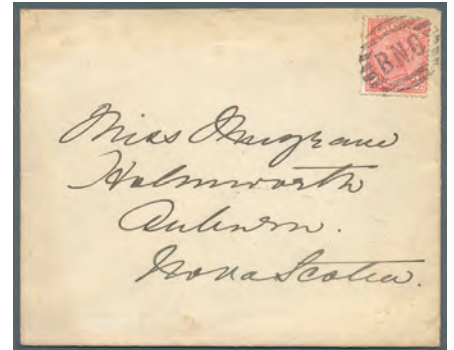 BNO
Miss Musgrave
Holmworth
Auburn.
Nova Scotia.